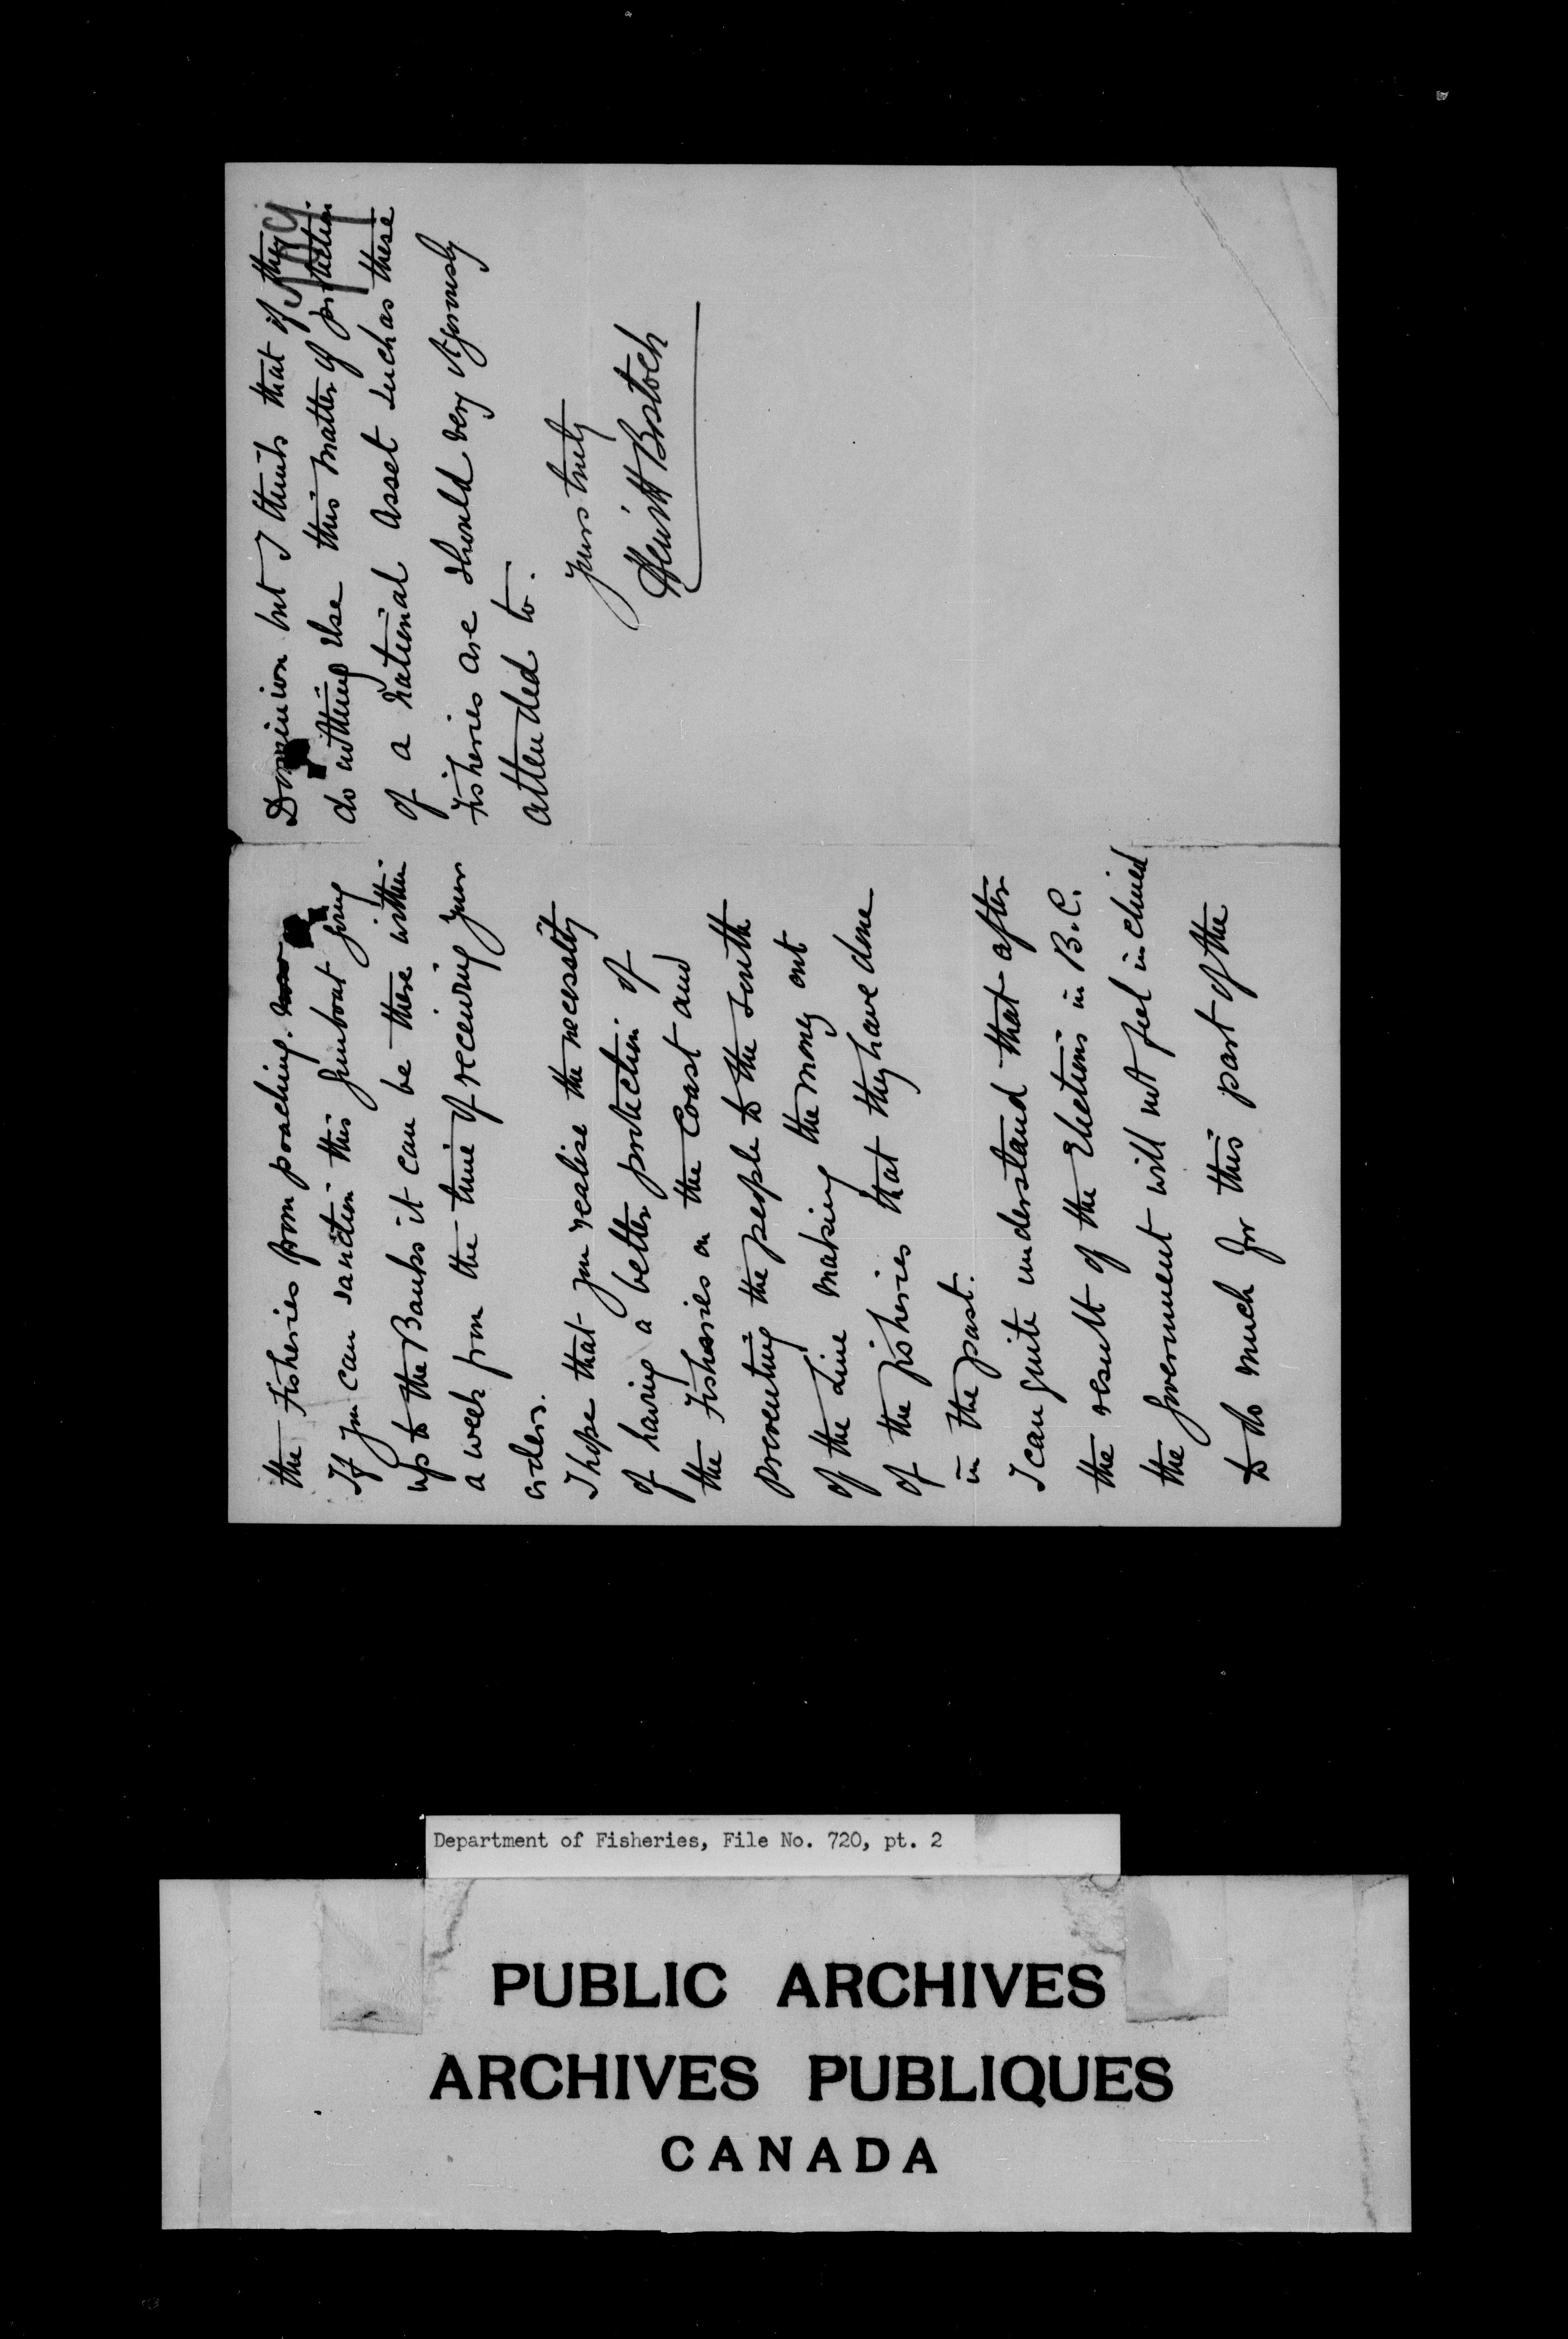 the Fisheries from poaching.
If you can sanction this gunboat going
up to the Banks it can be there within
a week from the time of receiving your
orders.
I hope that you realise the necessity
of having a better protection of
the Fisheries on the Coast and
preventing the people to the south
of the Line making the money out
of the fisheries that they have done
in the past.
I can quite understand that after
the result of the Elections in B.C.
the Government will not feel inclined
to do much for this part of the
Dominion but I think that if they
do nothing else this matter of protection
of a National Asset such as these
Fisheries are should very vigorously
attended to.
Yours truly
Hewitt Bostock
Department of Fisheries, File No. 720, pt. 2
PUBLIC ARCHIVES
ARCHIVES PUBLIQUES
CANADA